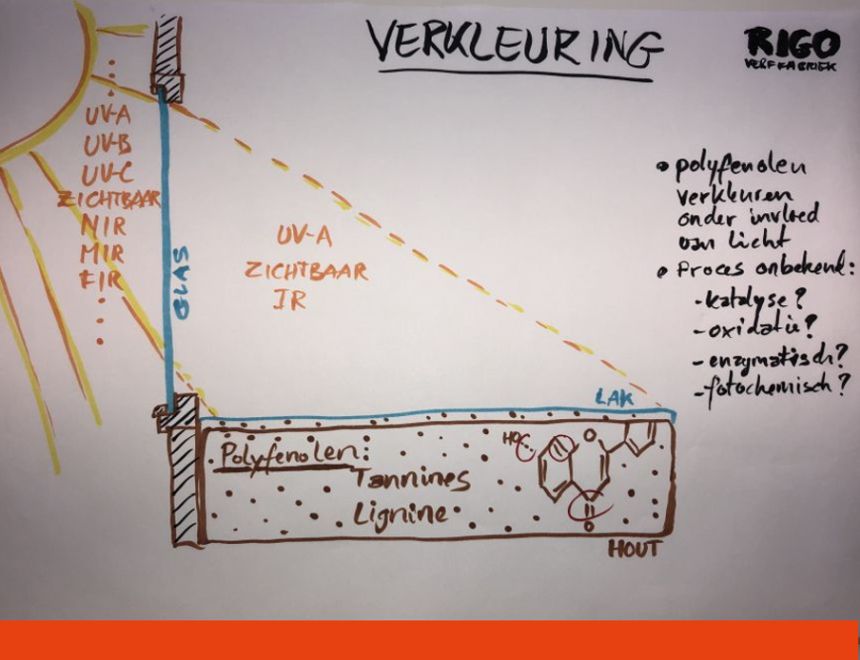 VERKLEURING
RIGO
VERFFABRIEK
UV-A
UV-B
UV-C
ZICHTBAAR
NIR
MIR
FIR
GLAS
UV-A
ZICHTBAAR
IR
• polyfenolen
verkleuren
onder invloed
van licht
• Proces onbekend:
- katalyse?
- oxidatie?
- enzymatisch?
- fotochemisch?
LAK
Polyfenolen:
Tannines
Lignine
HO
O
O
HOUT